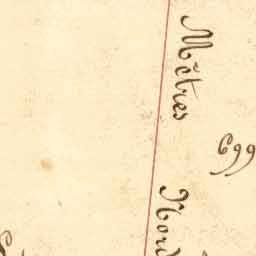 Mètres
699
Nord